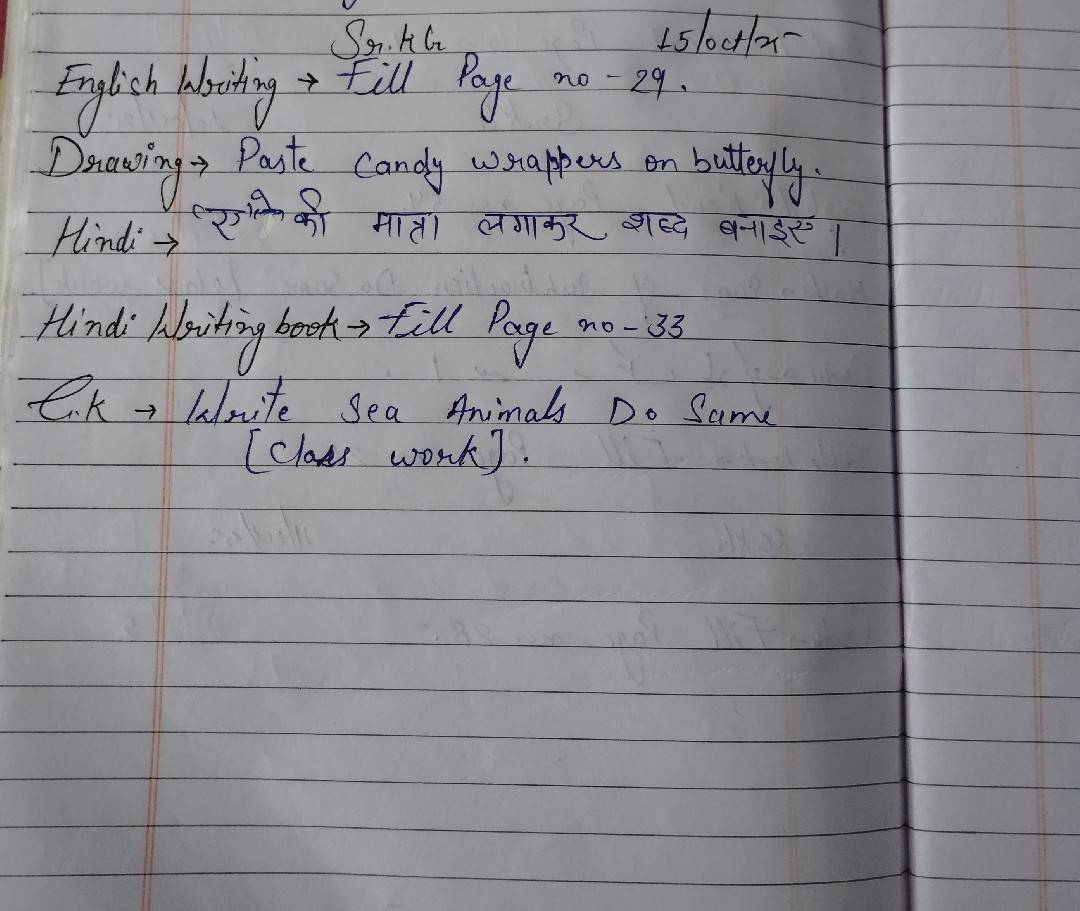 Sr. KG 15/oct/25
English Writing → Fill Page no - 29.
Drawing → Paste Candy wrappers on butterfly.
Hindi → की मात्रा लगाकर शब्द बनाइए।
Hindi Writing book → Fill Page no - 33
G.K → Write Sea Animals Do Same
[Class work].